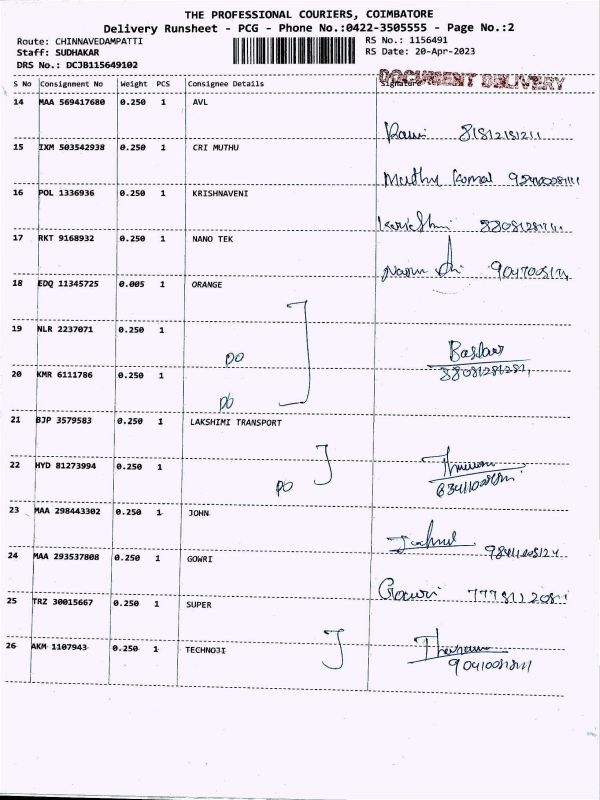 THE PROFESSIONAL COURIERS, COIMBATORE
Delivery Runsheet - PCG - Phone No.:0422-3505555 - Page No.:2
Route: CHINNAVEDAMPATTI
Staff: SUDHAKAR
DRS No.: DCJB115649102
RS No.: 1156491
RS Date: 20-Apr-2023
DOCUMENT DELIVERY
S No Consignment No Weight PCS Consignee Details Signature
14 MAA 569417680 0.250 1 AVL
15 IXM 503542938 0.250 1 CRI MUTHU
16 POL 1336936 0.250 1 KRISHNAVENI
17 RKT 9168932 0.250 1 NANO TEK
18 EDQ 11345725 0.005 1 ORANGE
19 NLR 2237071 0.250 1
DO
20 KMR 6111786 0.250 1
DO
21 BJP 3579583 0.250 1 LAKSHIMI TRANSPORT
22 HYD 81273994 0.250 1
DO
23 MAA 298443302 0.250 1 JOHN
24 MAA 293537808 0.250 1 GOWRI
Gowri
25 TRZ 30015667 0.250 1 SUPER
26 AKM 1107943 0.250 1 TECHNOJI